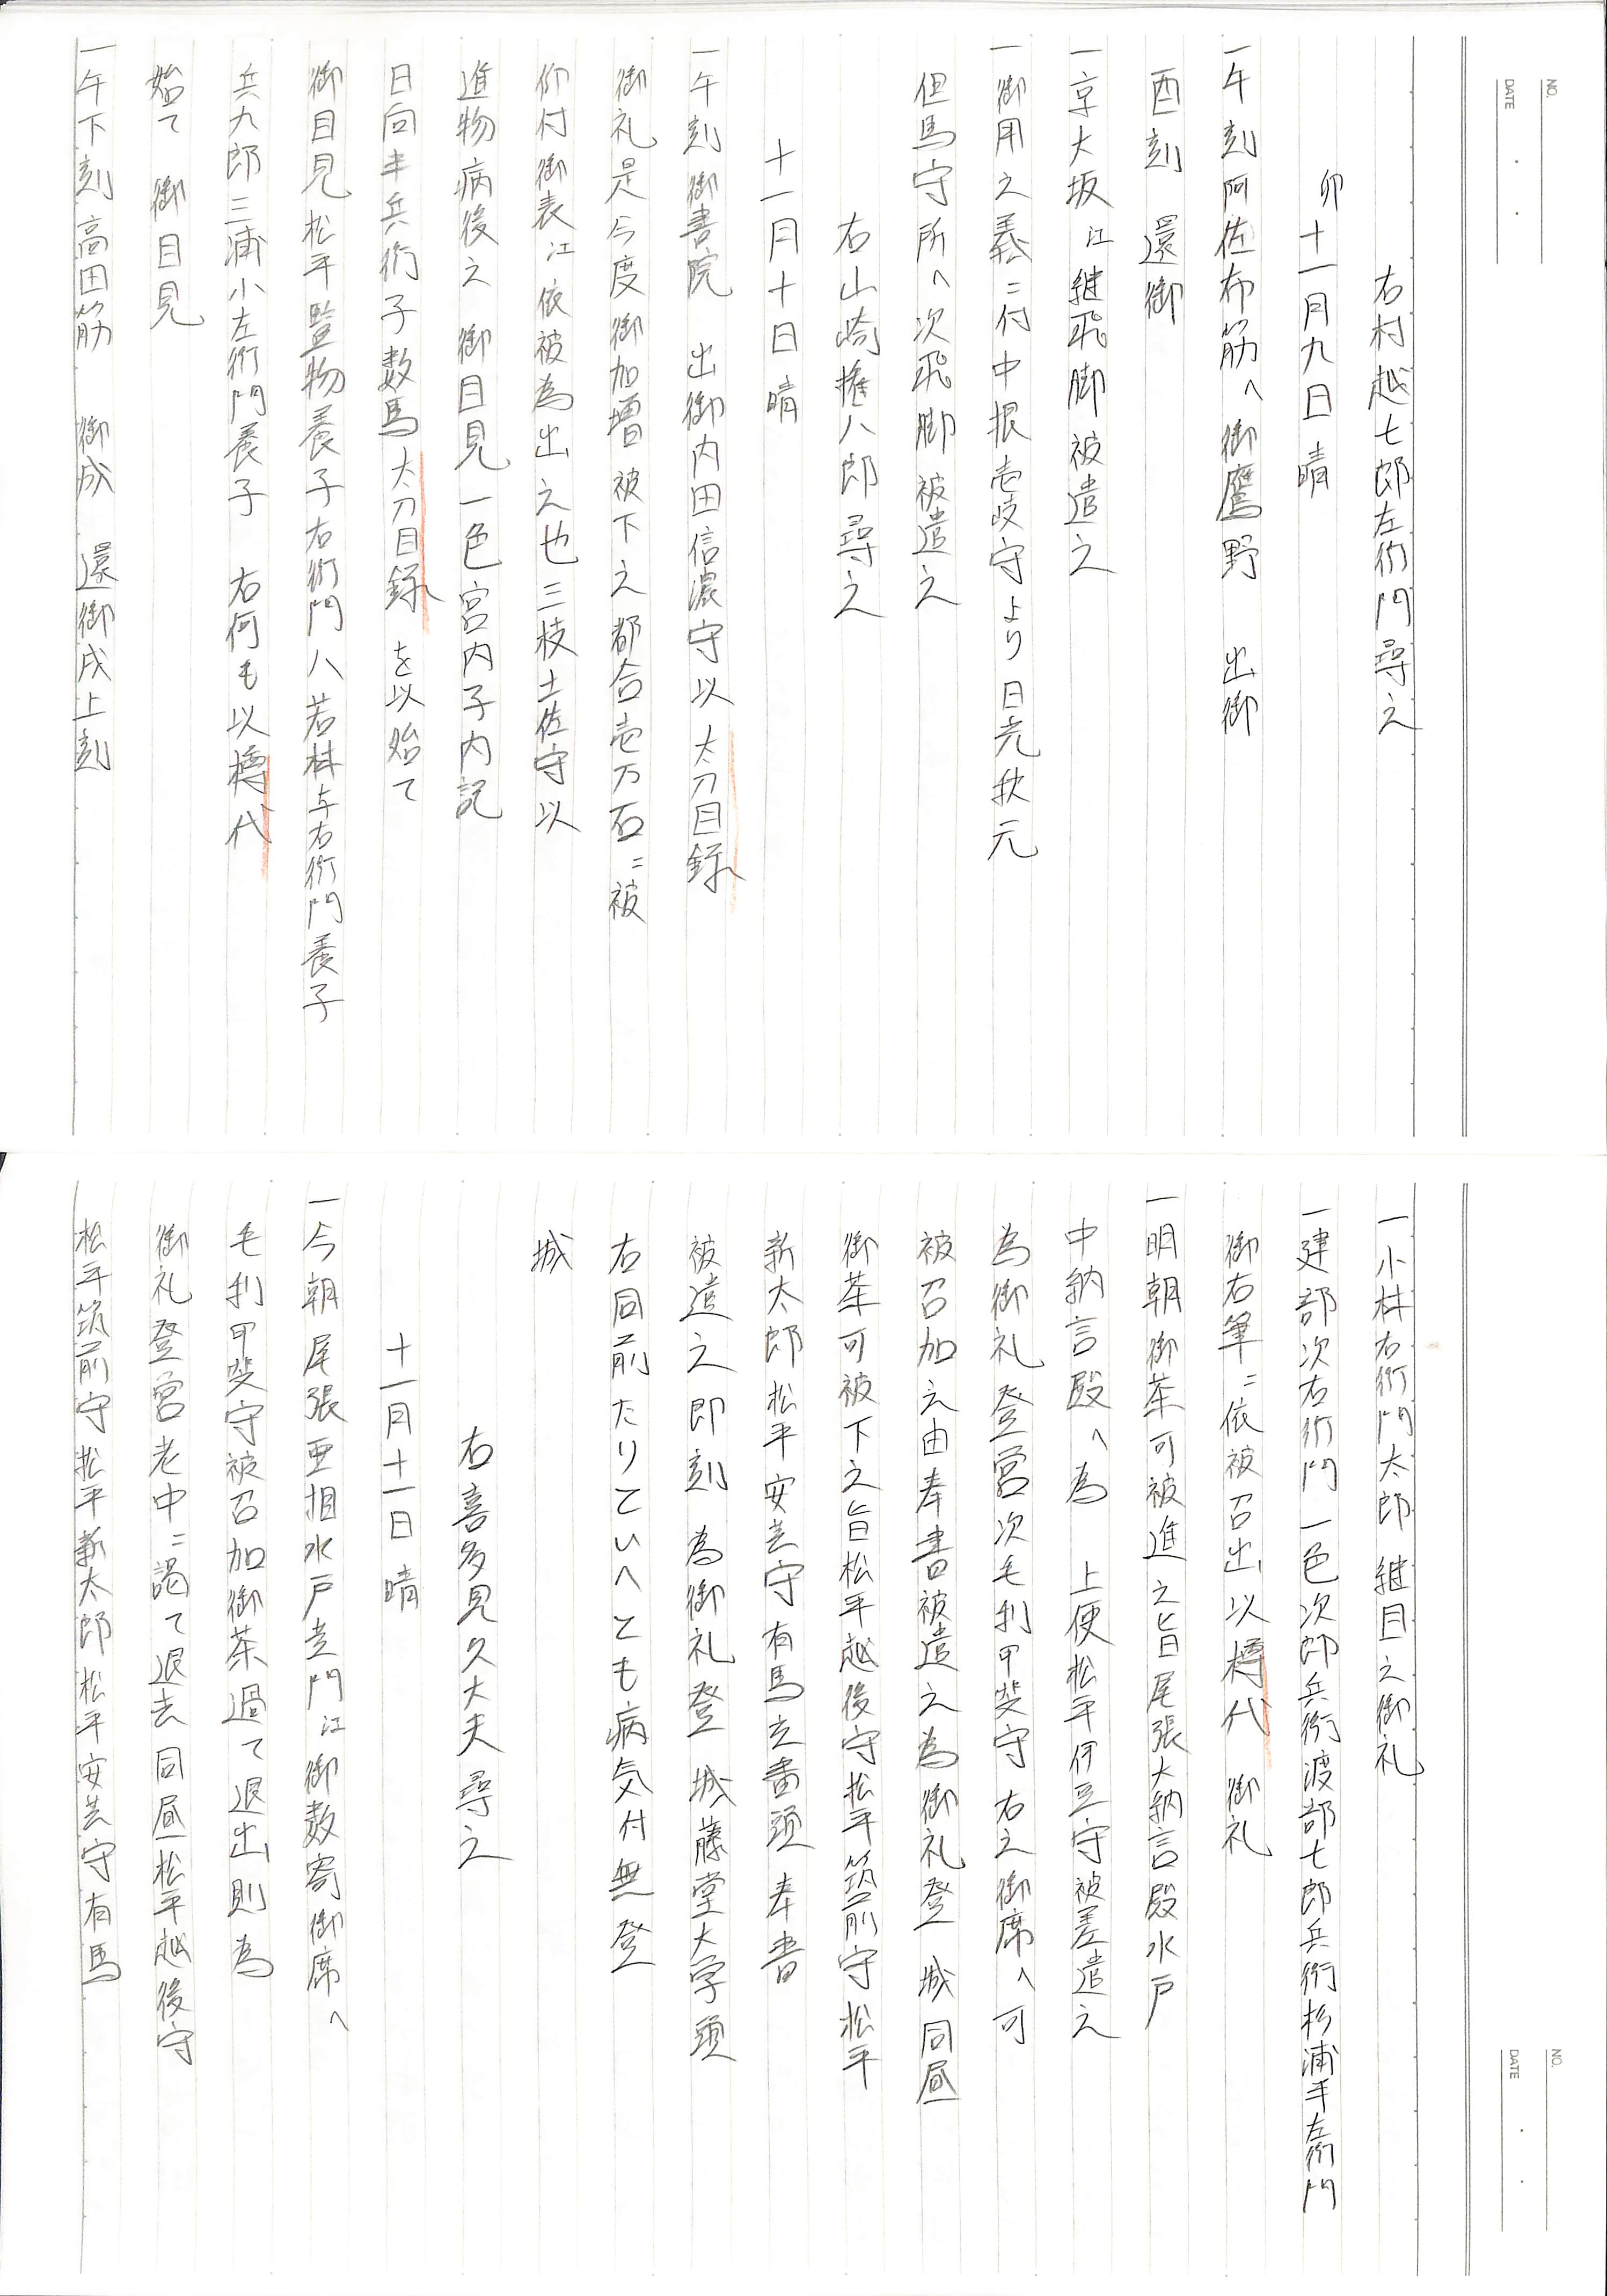 NO.
DATE
右村越七郎左衛門尋之
卯十一月九日 晴
一午刻阿佐布筋へ御鷹野 出御
酉刻 還御
一京大坂江継飛脚被遣之
一御用之義ニ付中根壱岐守より日光秋元
但馬守所へ次飛脚被遣之
右山崎権八郎尋之
十一月十日 晴
一午刻御書院 出御内田信濃守以太刀目録
御礼是今度御加増被下之都合壱万石ニ被
仰付御表江依被為出之也三枝土佐守以
進物病後之 御目見一色宮内子内記
日向半兵衛子数馬太刀目録を以始て
御目見松平監物養子右衛門八若林与右衛門養子
兵九郎三浦小左衛門養子 右何も以樽代
始て 御目見
一午下刻高田筋 御成 還御戌上刻
NO.
DATE
一小林右衛門太郎継目之御礼
一建部次右衛門一色次郎兵衛渡部七郎兵衛杉浦半左衛門
御右筆ニ依被召出以樽代 御礼
一明朝御茶可被進之旨尾張大納言殿水戸
中納言殿へ為 上使松平伊豆守被差遣之
為御礼登営次毛利甲斐守右之御席へ可
被召加之由奉書被遣之為御礼登 城同昼
御茶可被下之旨松平越後守松平筑前守松平
新太郎松平安芸守有馬玄蕃頭奉書
被遣之即刻為御礼登 城藤堂大学頭
右同前たりといへとも病気付無登
城
右喜多見久大夫尋之
十一月十一日 晴
一今朝尾張亜相水戸黄門江御数寄御席へ
毛利甲斐守被召加御茶過て退出則為
御礼登営老中ニ謁て退去同昼松平越後守
松平筑前守松平新太郎松平安芸守有馬